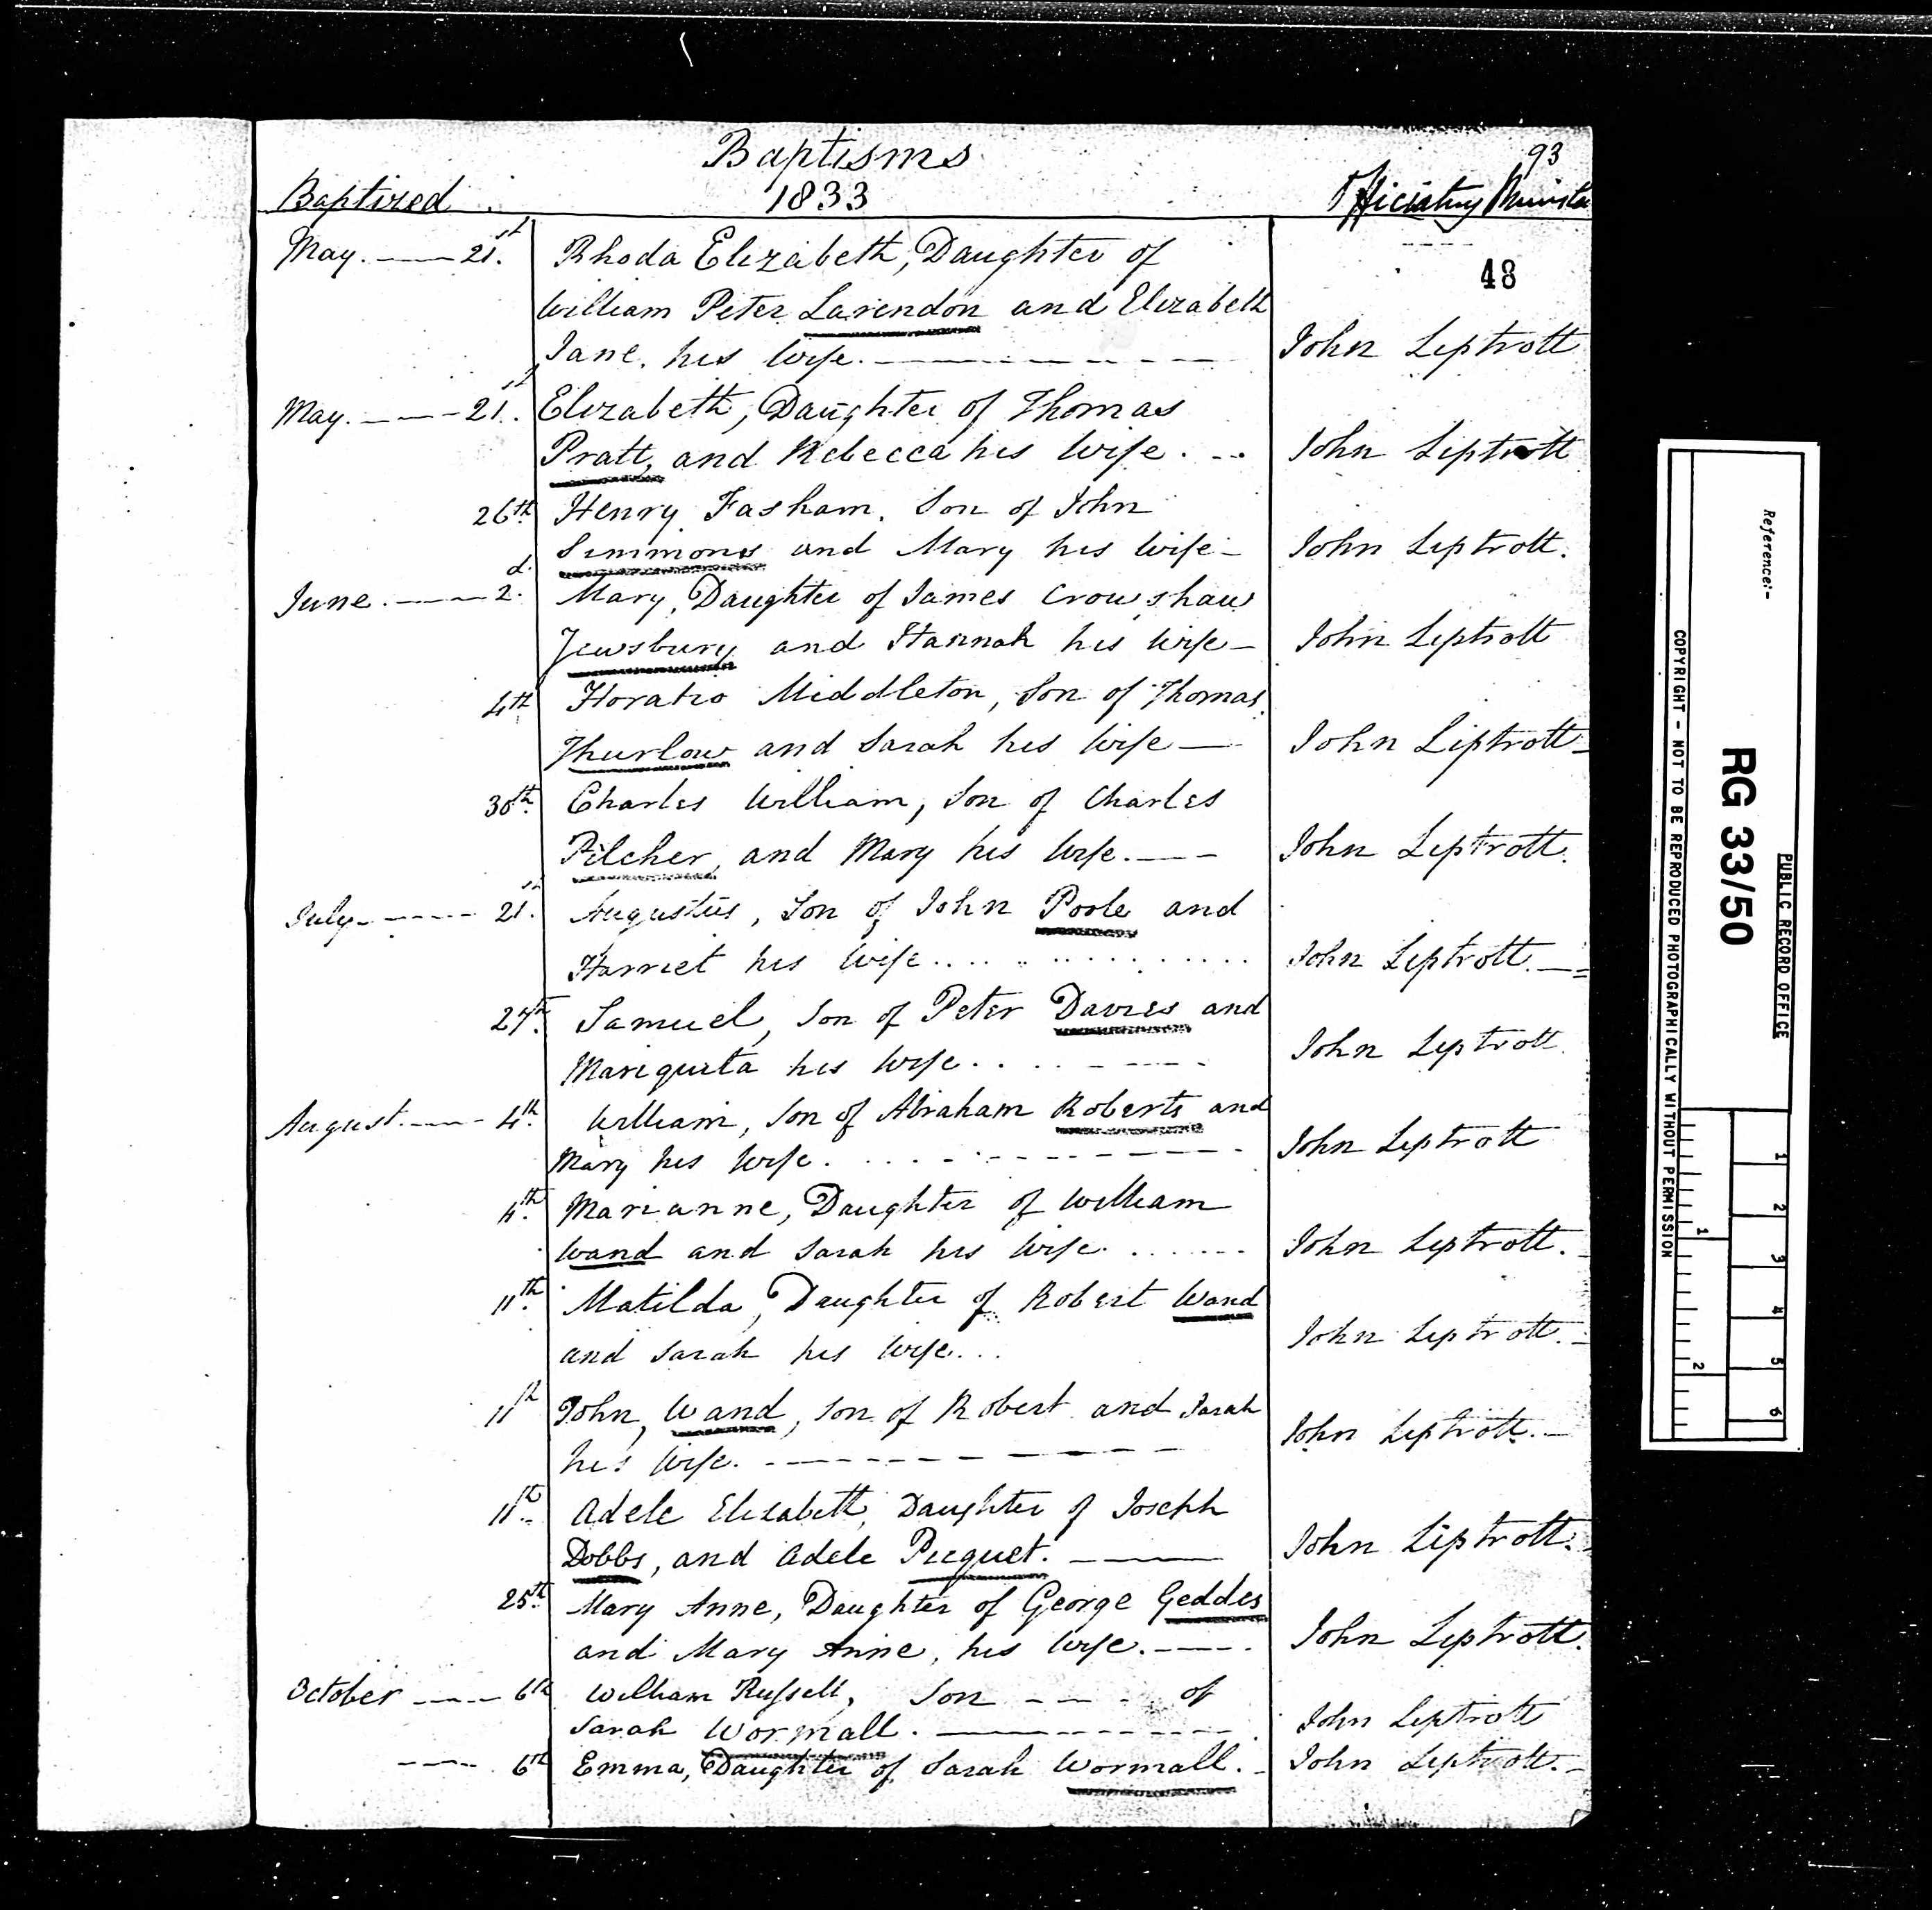 Baptisms
93
Baptized
1833
Officiatng Minister
May. 21st.
Rhoda Elizabeth, Daughter of
48
William Peter Larendon and Elizabeth
Jane. his Wife.
John Liptrott
May. 21st.
Elizabeth, Daughter of Thomas
Pratt, and Rebecca his Wife.
John Liptrott
26th.
Henry Fasham. Son of John
Simmonds and Mary his Wife
John Liptrott.
June. 2d.
Mary, Daughter of James Crowshaw
Jewsbury and Hannah his Wife
John Liptrott
4th
Horatio Middleton, Son of Thomas
Thurlow and Sarah his Wife
John Liptrott
30th.
Charles William, Son of Charles
Pilcher, and Mary his Wife.
John Liptrott.
July 21st.
Augustus, Son of John Poole and
Harriet his Wife
John Liptrott.
Samuel, Son of Peter Davies and
Mariquita his Wife.
John Liptrott
August. 4th.
William, Son of Abraham Roberts and
Mary his Wife.
John Liptrott
4th.
Marianne, Daughter of William
Wand and Sarah his Wife.
John Liptrott.
11th.
Matilda, Daughter of Robert Wand
and Sarah his Wife.
John Liptrott.
11th
John, Wand, Son of Robert and Sarah
his Wife.
John Liptrott.
11th.
Adele Elizabeth, Daughter of Joseph
Dobbs, and Adele Picquet.
John Liptrott.
25th.
Mary Anne, Daughter of George Geddes
and Mary Anne, his Wife.
John Liptrott.
October 6th
William Russell, Son of
Sarah Wormall.
John Liptrott
6th
Emma, Daughter of Sarah Wormall.
John Liptrott.
Reference:-
PUBLIC RECORD OFFICE
RG 33/50
COPYRIGHT - NOT TO BE REPRODUCED PHOTOGRAPHICALLY WITHOUT PERMISSION
1 2 3 4 5 6
1 2